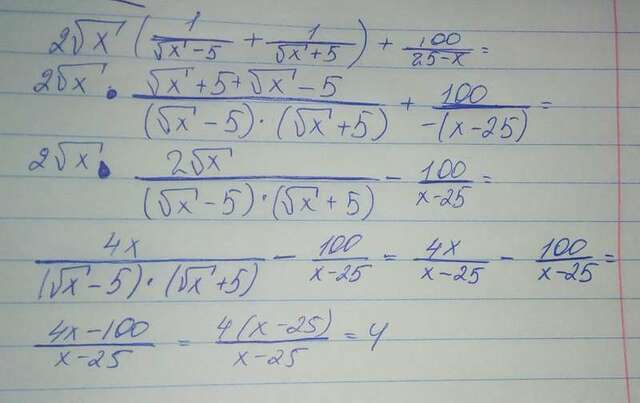 2√x (1/(√x-5) + 1/(√x+5)) + 100/(25-x) =
2√x • (√x+5+√x-5)/((√x-5)·(√x+5)) + 100/(-(x-25)) =
2√x • 2√x/((√x-5)·(√x+5)) - 100/(x-25) =
4x/((√x-5)·(√x+5)) - 100/(x-25) = 4x/(x-25) - 100/(x-25) =
(4x-100)/(x-25) = 4(x-25)/(x-25) = 4